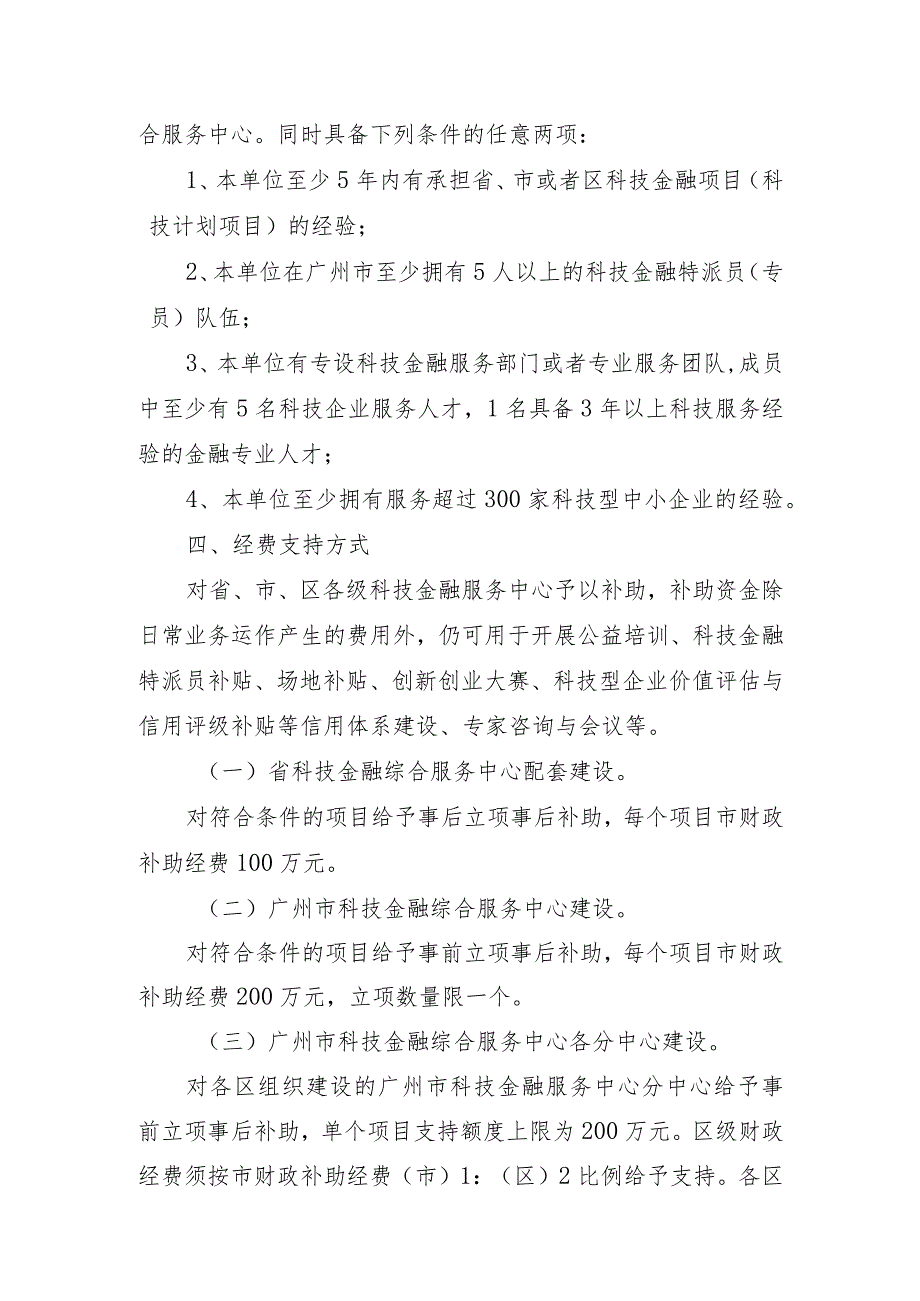 合服务中心。同时具备下列条件的任意两项：
1、本单位至少 5 年内有承担省、市或者区科技金融项目（科
技计划项目）的经验；
2、本单位在广州市至少拥有 5 人以上的科技金融特派员（专
员）队伍；
3、本单位有专设科技金融服务部门或者专业服务团队,成员
中至少有 5 名科技企业服务人才，1 名具备 3 年以上科技服务经
验的金融专业人才；
4、本单位至少拥有服务超过 300 家科技型中小企业的经验。
四、经费支持方式
对省、市、区各级科技金融服务中心予以补助，补助资金除
日常业务运作产生的费用外，仍可用于开展公益培训、科技金融
特派员补贴、场地补贴、创新创业大赛、科技型企业价值评估与
信用评级补贴等信用体系建设、专家咨询与会议等。
（一）省科技金融综合服务中心配套建设。
对符合条件的项目给予事后立项事后补助，每个项目市财政
补助经费 100 万元。
（二）广州市科技金融综合服务中心建设。
对符合条件的项目给予事前立项事后补助，每个项目市财政
补助经费 200 万元，立项数量限一个。
（三）广州市科技金融综合服务中心各分中心建设。
对各区组织建设的广州市科技金融服务中心分中心给予事
前立项事后补助，单个项目支持额度上限为 200 万元。区级财政
经费须按市财政补助经费（市）1：（区）2 比例给予支持。各区